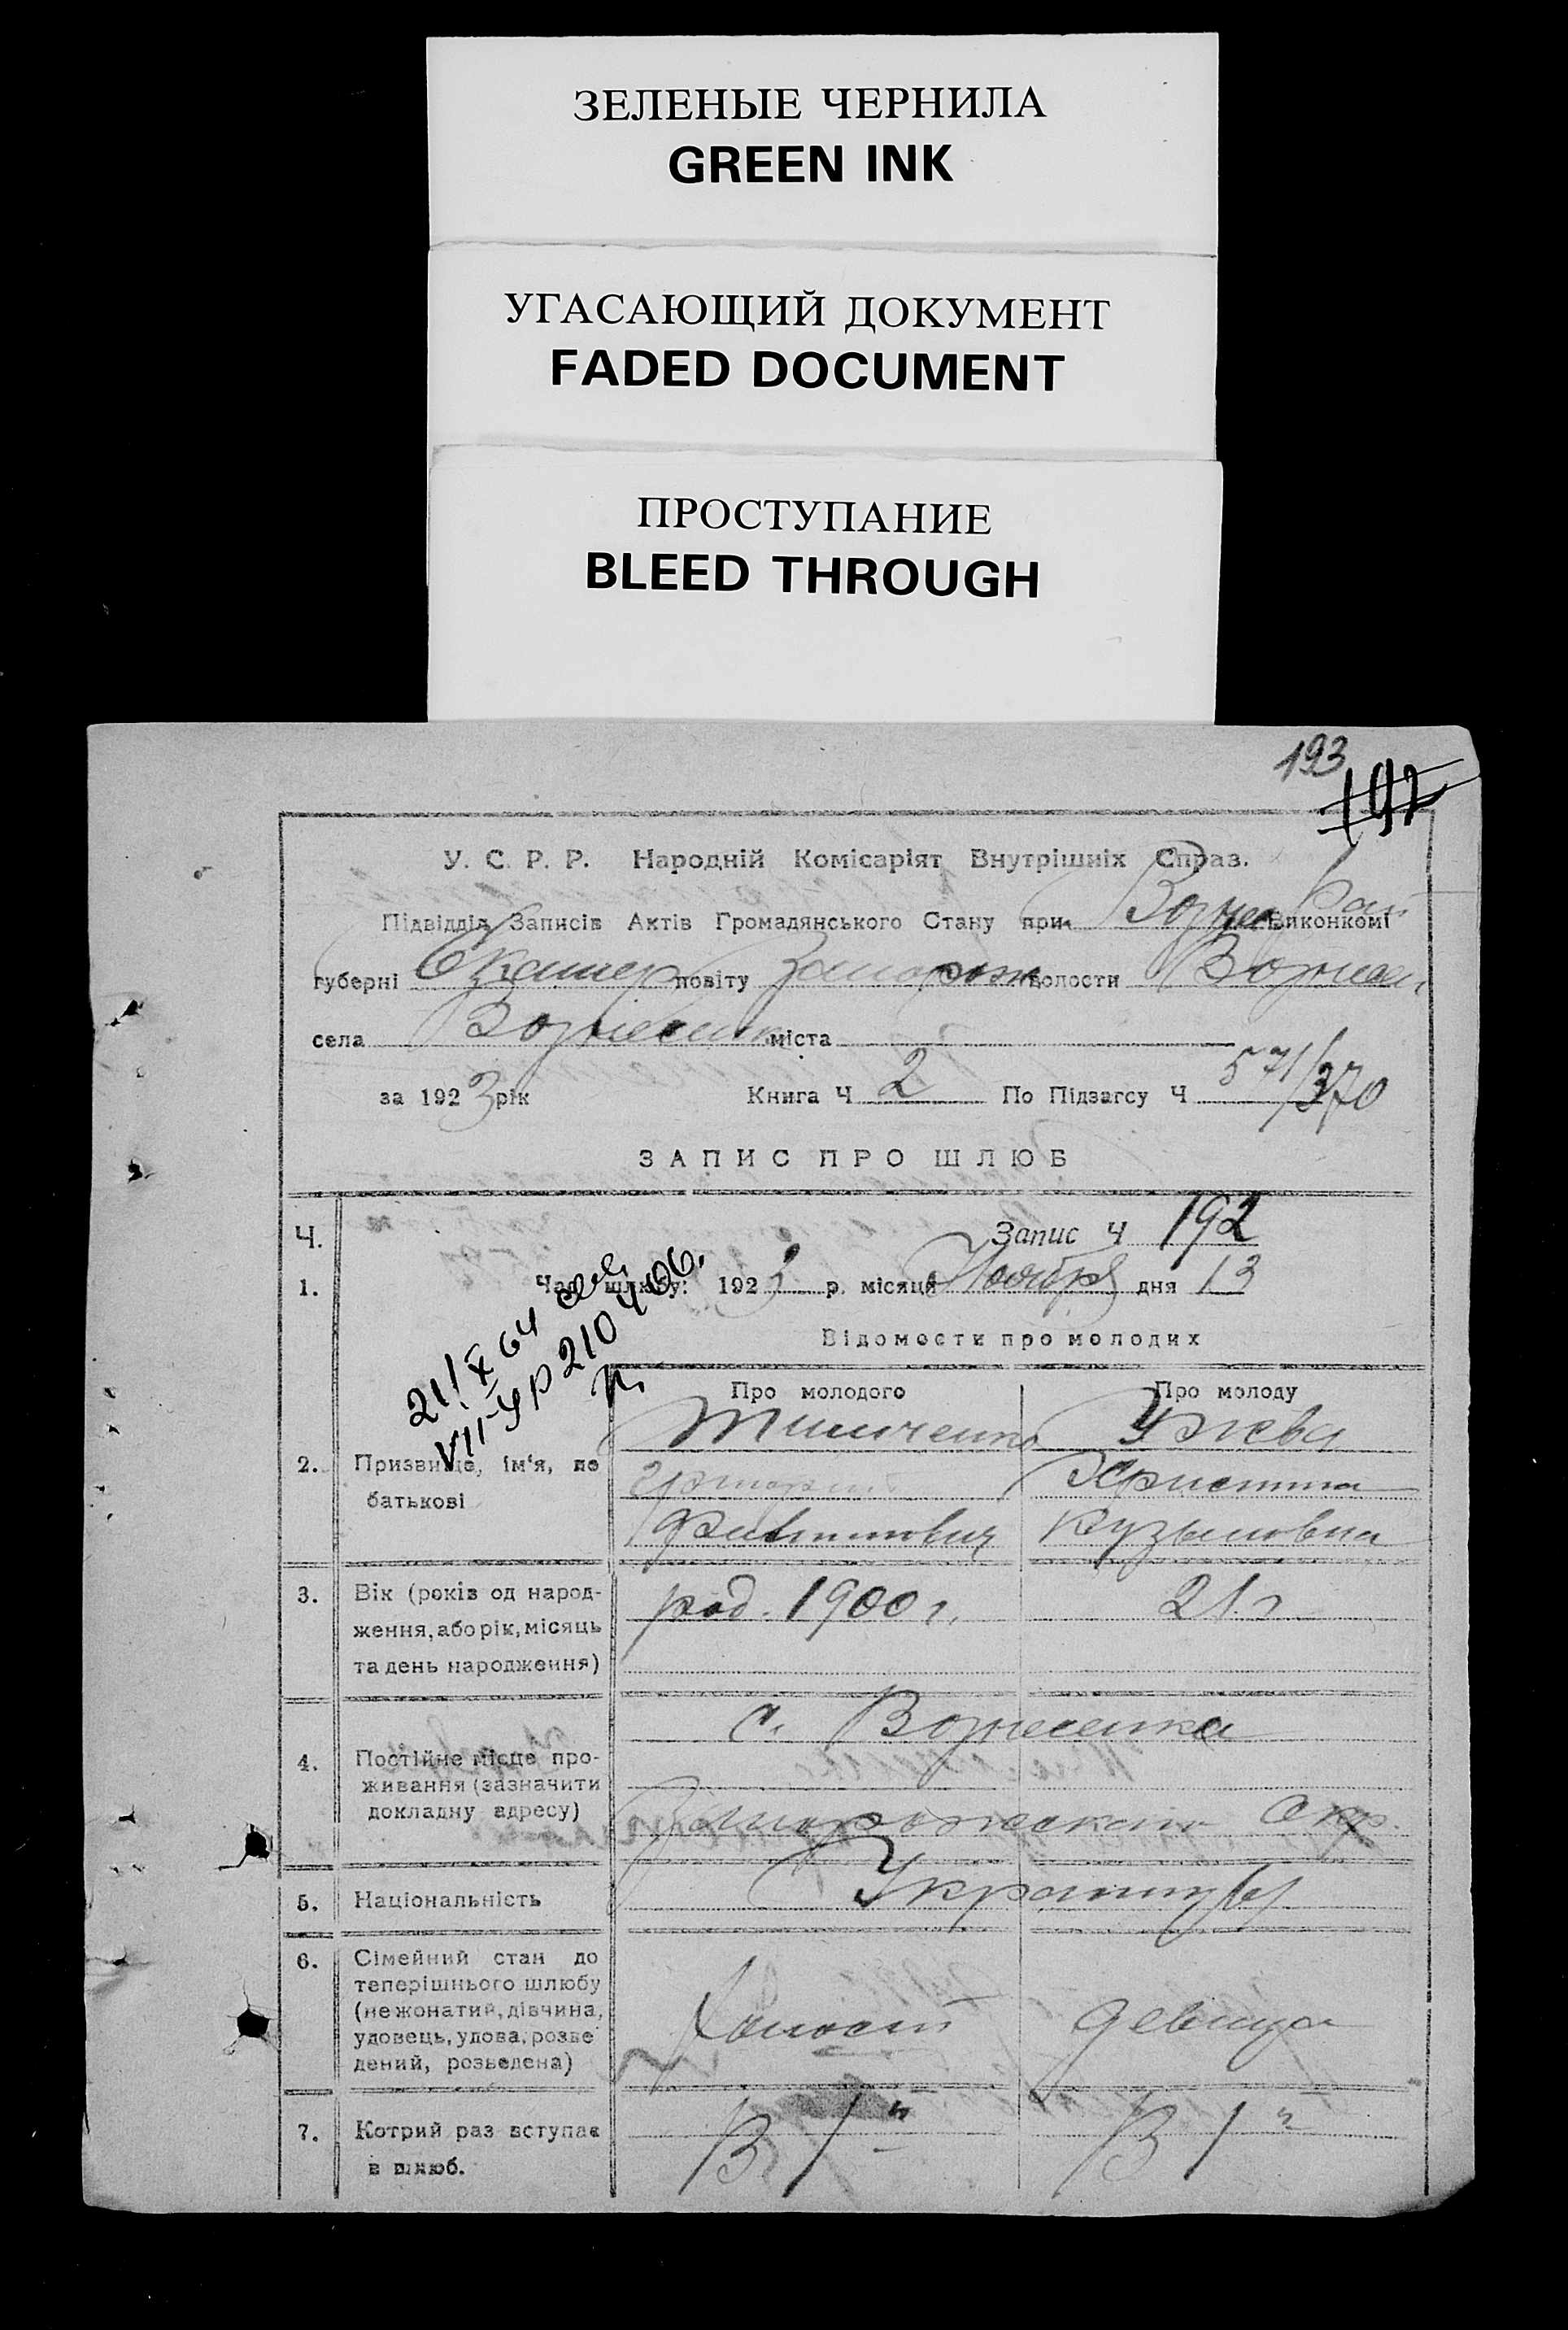 ЗЕЛЕНЫЕ ЧЕРНИЛА
GREEN INK
УГАСАЮЩИЙ ДОКУМЕНТ
FADED DOCUMENT
ПРОСТУПАНИЕ
BLEED THROUGH
193
197
У. С. Р. Р. Народній Комісаріят Внутрішніх Справ.
Підвідділ Записів Актів Громадянського Стану при Вознес Рай Виконкомі
губерні Екатер повіту Запорож волости Вознесен
села Вознесенка міста
за 1923 рік Книга Ч 2 По Підзагсу Ч 571/370
ЗАПИС ПРО ШЛЮБ
Ч. Запис Ч 192
1. Час шлюбу: 1923 р. місяця Ноября дня 13
Відомости про молодих
21/X 64
VII-УР 210406
Про молодого Про молоду
Тимченко
2. Призвище, ім'я, по Христина
батькові
Филиппович Кузьмовна
3. Вік (років од народ- род. 1900 г. 21 г
ження, або рік, місяць
та день народження)
с. Вознесенка
4. Постійне місце про-
живання (зазначити
докладну адресу) Запорожского Окр.
5. Національність Украинцы
6. Сімейний стан до
теперішнього шлюбу
(нежонатий, дівчина, Холост девица
удовець, удова, розве
дений, розведена)
7. Котрий раз вступає В 1й В 1й
в шлюб.